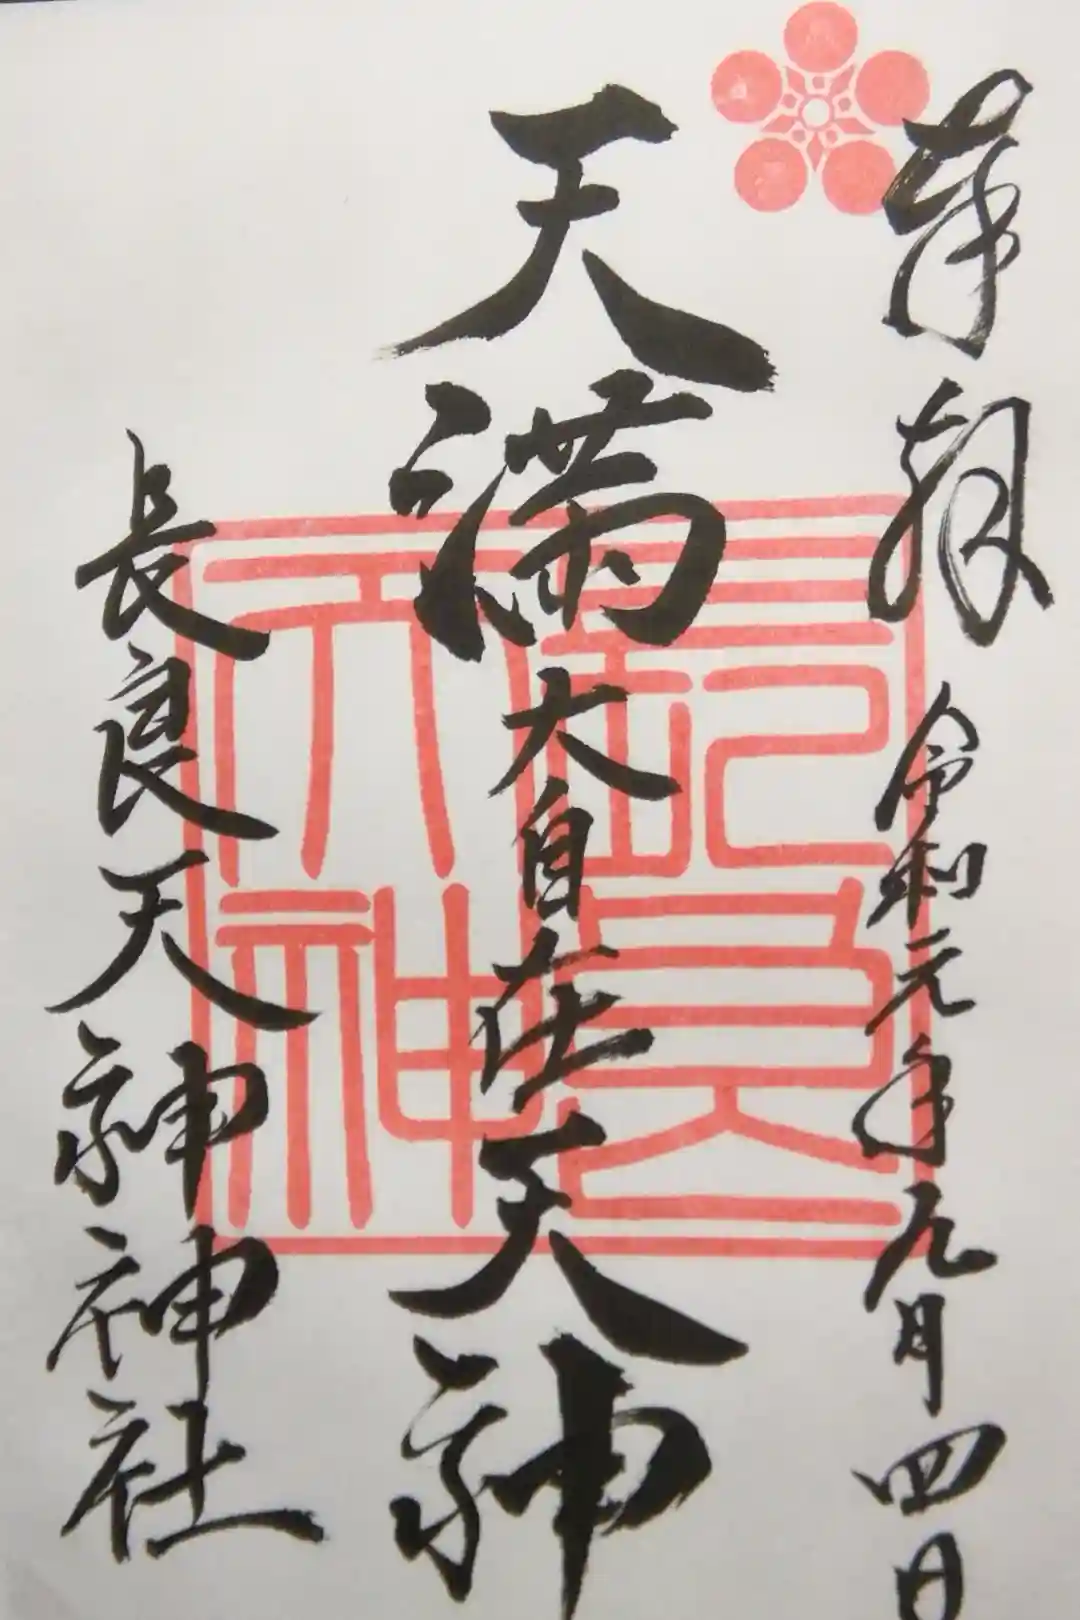 奉拝
令和元年九月四日
天満大自在天神
長良天神神社
長良天神